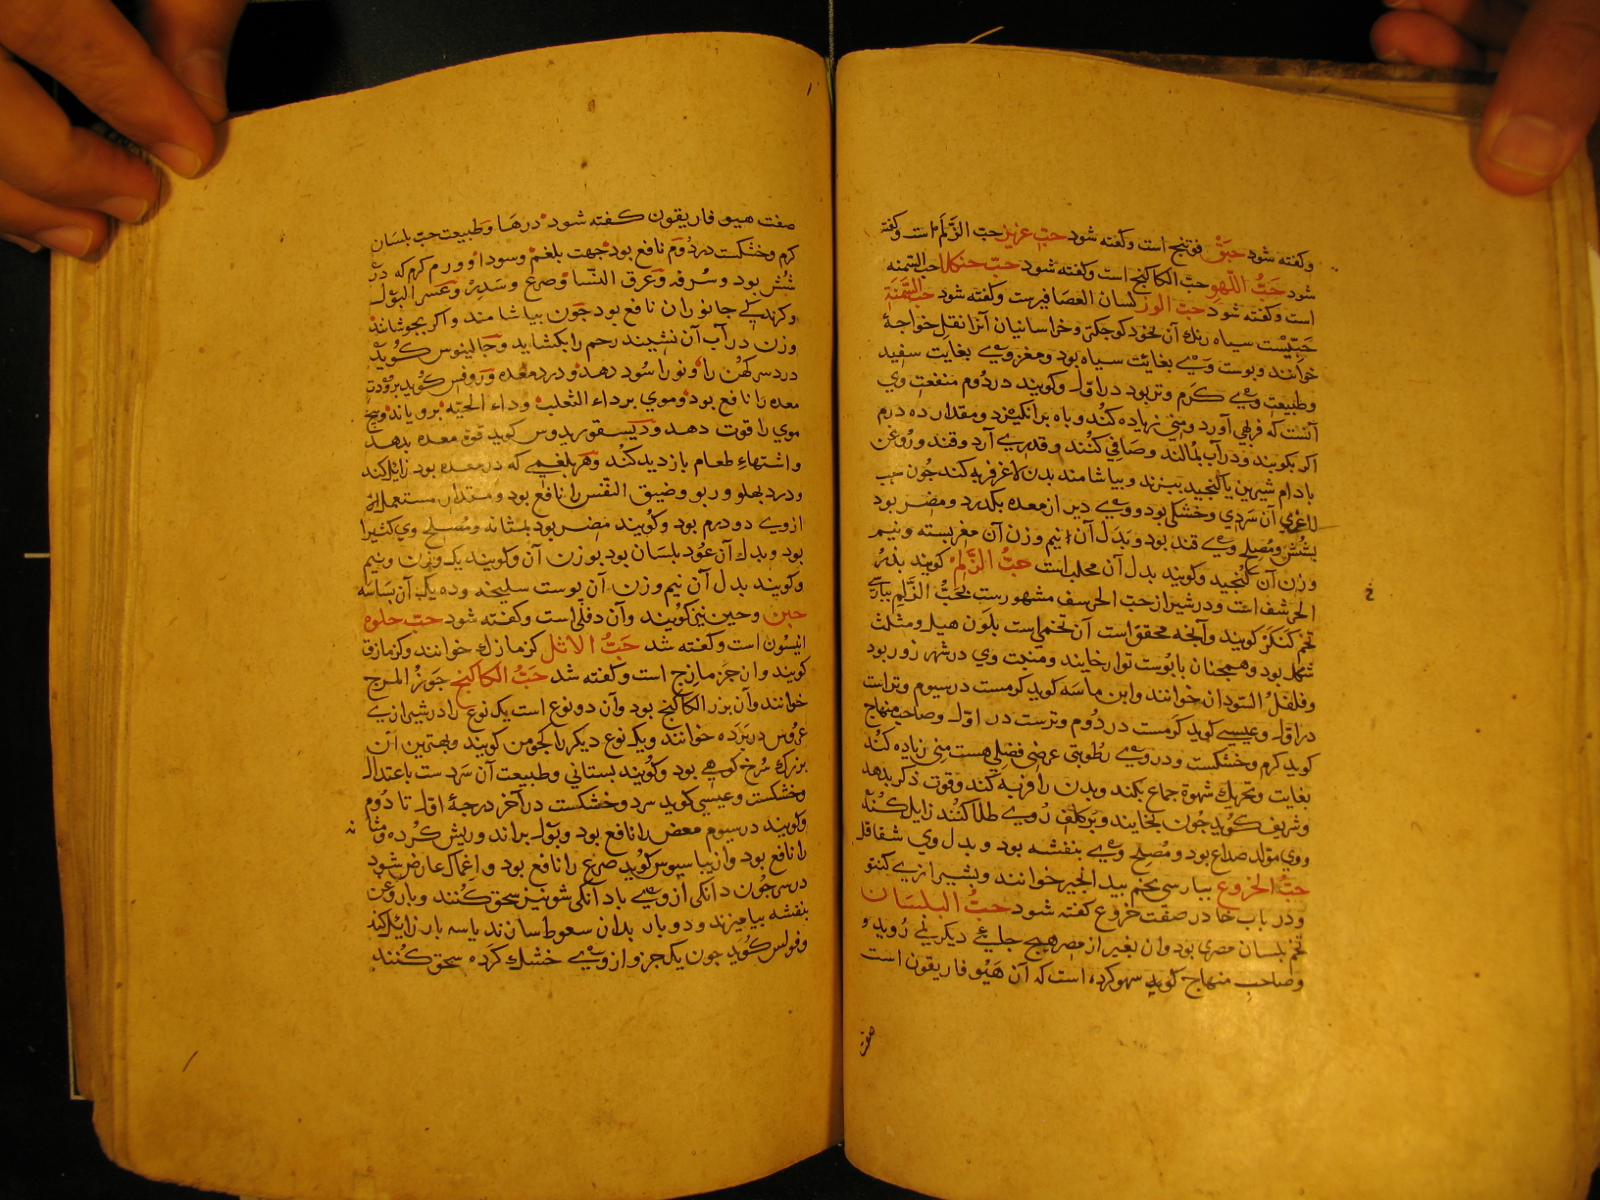 وکفته شود حبق فوتنج است وکفته شود حبّ عزیز حبّ الزّلم است وکفته
شود حبُّ اللّهو حبّ الکاکنج است وکفته شود حبّ حنکلا حب السمنه
است وکفته شود حبّ الوز لسان العصافیرست وکفته شود حبّ السّمنة
حبّیست سیاه رنك آن لخود کوچکتر وخراسانیان آنرا نقل خواجهٔ
خوانند وپوست وی بغایت سیاه بود ومغز وی بغایت سفید
وطبیعت وی کرم وتر بود در اوّل وکویند در دوم منفعت وی
آنست که فربهی آورد ومنی زیاده کند وباه برانکیزد ومقدار ده درم
اکر بکوبند ودر آب بمالند وصافی کنند وقدری آرد وقند وروغن
بادام شیرین یا کنجید بپزند وبیاشامند بدن لاغر فربه کند جون حب
لاغری آن سردی وخشکی بود ووی دیر از معده بکذرد ومضر بود
بشش ومصلح وی قند بود وبدل آن نیم وزن آن مغز پسته ونیم
وزن آن کنجید وکویند بدل آن محلب است حبُّ الزّلم کویند بذر
الحرشف است ودر شیراز حبّ الحرسف مشهورست بحبُّ الزّلم بپارسی
تخم کنکر کویند وآنجه محقق است آن تخمی است بلون هیل ومثلث
شکل بود وهمجنان با پوست توان خایند ومنبت وی در شهر زور بود
وفلفل السّودان خوانند وابن ماسه کوید کرمست در سیوم وتراست
در اوّل وعیسی کوید کرمست در دوم وترست در اوّل وصاحب منهاج
کوید کرم وخشکست ودر وی رطوبتی عرضی فضلی هست منی زیاده کند
بغایت وتحریك شهوة جماع بکند وبدن را فربه کند وقوت ذکر بدهد
وشریف کوید جون بخایند وبر کلف روی طلا کنند زایل کند
ووی مولد صداع بود ومصلح وی بنفشه بود وبدل وی شقاقل
حبُّ الخروع بپارسی تخم بید انجیر خوانند وبشیرازی کنتو
ودر باب خا در صفت خروع کفته شود حبُّ البلسان
تخم بلسان مصری بود وآن بغیر از مصر هیچ جایی دیکر نمی روید و
وصاحب منهاج کوید سهو کرده است که آن هیو فاریقون است
صفت
صفت هیو فاریقون کفته شود درها وطبیعت حبّ بلسان
کرم وخشکست در دوم نافع بود جهت بلغم وسودا وورم کرم که در
شش بود وسرفه وعرق النّسا وصرع وسدر وعسر البول
وکزندکی جانوران نافع بود جون بیاشامند واکر بجوشانند
وزن در آب آن نشیند رحم را بکشاید وجالینوس کوید
درد سر کهن را ونو را سود دهد ودرد معده وروفس کوید برودت
معده را نافع بود وموی بر داء الثعلب وداء الحیّه برویاند وبیخ
موی را قوت دهد ودیسقوریدوس کوید قوة معده بدهد
واشتهاء طعام بازدید کند وهر بلغمی که در معده بود زایل کند
ودرد پهلو وربو وضیق النّفس را نافع بود ومقدار مستعمل از
از وی دو درم بود وکویند مضر بود بمثانه ومصلح وی کثیرا
بود وبدل آن عود بلسان بود بوزن آن وکویند یك وزن ونیم
وکویند بدل آن نیم وزن آن پوست سلیخه وده یك آن بسباسه
حبن وحبین نیز کویند وآن دفلی است وکفته شود حبّ حلوه
انیسون است وکفته شد حبُّ الاثل کزمازك خوانند وکزمازق
کویند وآن جزمازج است وکفته شد حبُّ الکاکنج جوز المرج
خوانند وآن بزر الکاکنج بود وآن دو نوع است یك نوع را در شیرازی
عروس در پرده خوانند ویك نوع دیکر را کجومن کویند وبهترین آن
بزرك سرخ کوهی بود وکویند بستانی وطبیعت آن سردست باعتدال
وخشکست وعیسی کوید سرد وخشکست در آخر درجهٔ اوّل تا دوم
وکویند در سیوم معض را نافع بود وبول براند وریش کرده ومثا
نه
را نافع بود وازیباسیوس کوید صرع را نافع بود واغما که عارض شود
در سر جون دانکی از وی با دانکی شونیز سحق کنند وبا روغن
بنفشه بیامیزند ودو بار بدان سعوط سازند یا سه بار زایل کند
وفولس کوید جون یك جزو از وی خشك کرده سحق کنند